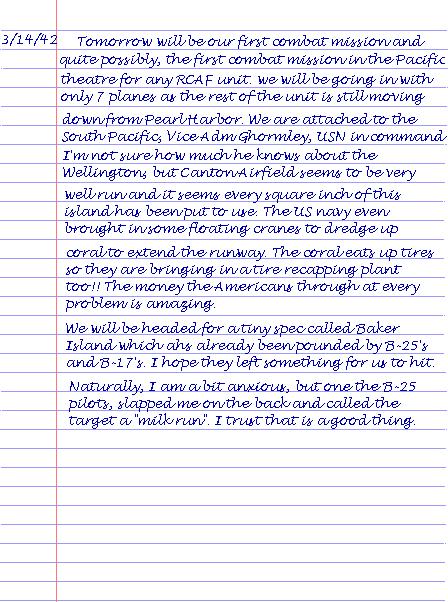 3/14/42 Tomorrow will be our first combat mission and
quite possibly, the first combat mission in the Pacific
theatre for any RCAF unit. we will be going in with
only 7 planes as the rest of the unit is still moving
down from Pearl Harbor. We are attached to the
South Pacific, Vice Adm Ghormley, USN in command
I'm not sure how much he knows about the
Wellington, but Canton Airfield seems to be very
well run and it seems every square inch of this
island has been put to use. The US navy even
brought in some floating cranes to dredge up
coral to extend the runway. The coral eats up tires
so they are bringing in a tire recapping plant
too!! The money the Americans through at every
problem is amazing.
We will be headed for a tiny spec called Baker
Island which ahs already been pounded by B-25's
and B-17's. I hope they left something for us to hit.
Naturally, I am a bit anxious, but one the B-25
pilots, slapped me on the back and called the
target a "milk run". I trust that is a good thing.